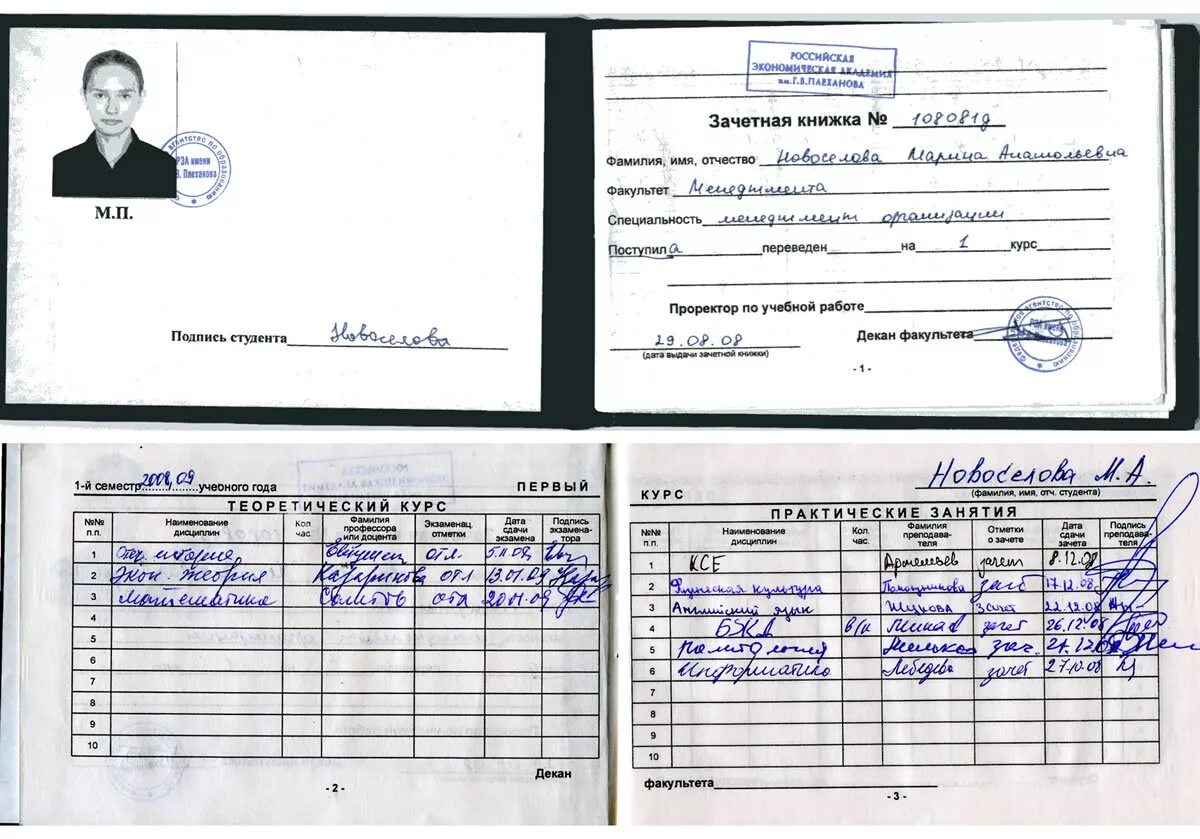 М.П.
РЭА имени
Подпись студента Новоселова
РОССИЙСКАЯ
ЭКОНОМИЧЕСКАЯ АКАДЕМИЯ
им.Г.В.ПЛЕХАНОВА
Зачетная книжка № 108081д
Фамилия, имя, отчество Новоселова Марина Анатольевна
Факультет Менеджмента
Специальность менеджмент организации
Поступила переведен на 1 курс
Проректор по учебной работе
29.08.08
Декан факультета
(дата выдачи зачетной книжки)
- 1 -
1-й семестр 2008/09 учебного года ПЕРВЫЙ
ТЕОРЕТИЧЕСКИЙ КУРС
№№ п.п. Наименование дисциплин Кол. час Фамилия профессора или доцента Экзаменац. отметки Дата сдачи экзамена Подпись экзамена-тора
1 Отеч. история отл.
2 Экон. теория Казаринова отл 13.01.09
3 Математика отл 20.01.09
4
5
6
7
8
9
10
Декан
- 2 -
КУРС Новоселова М.А.
(фамилия, имя, отч. студента)
ПРАКТИЧЕСКИЕ ЗАНЯТИЯ
№№ п.п. Наименование дисциплин Кол. час. Фамилия преподава-теля Отметки о зачете Дата сдачи зачета Подпись преподава-теля
1 КСЕ Артемьев зачет 8.12.08
2 Физическая культура зачет 17.12.08
3 Английский язык Шукова зачет 22.12.08
4 БЖД зачет 26.12.08
5 Политология зач.
6 Информатика Лебедева зачет 27.10.08
7
8
9
10
факультета
- 3 -